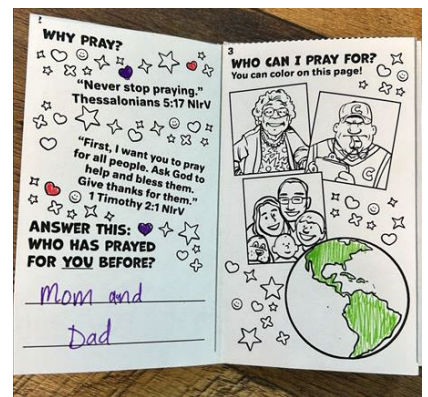 WHY PRAY?
“Never stop praying.”
Thessalonians 5:17 NIrV
“First, I want you to pray
for all people. Ask God to
help and bless them.
Give thanks for them.”
1 Timothy 2:1 NIrV
ANSWER THIS:
WHO HAS PRAYED
FOR YOU BEFORE?
Mom and
Dad
3
WHO CAN I PRAY FOR?
You can color on this page!
C
C